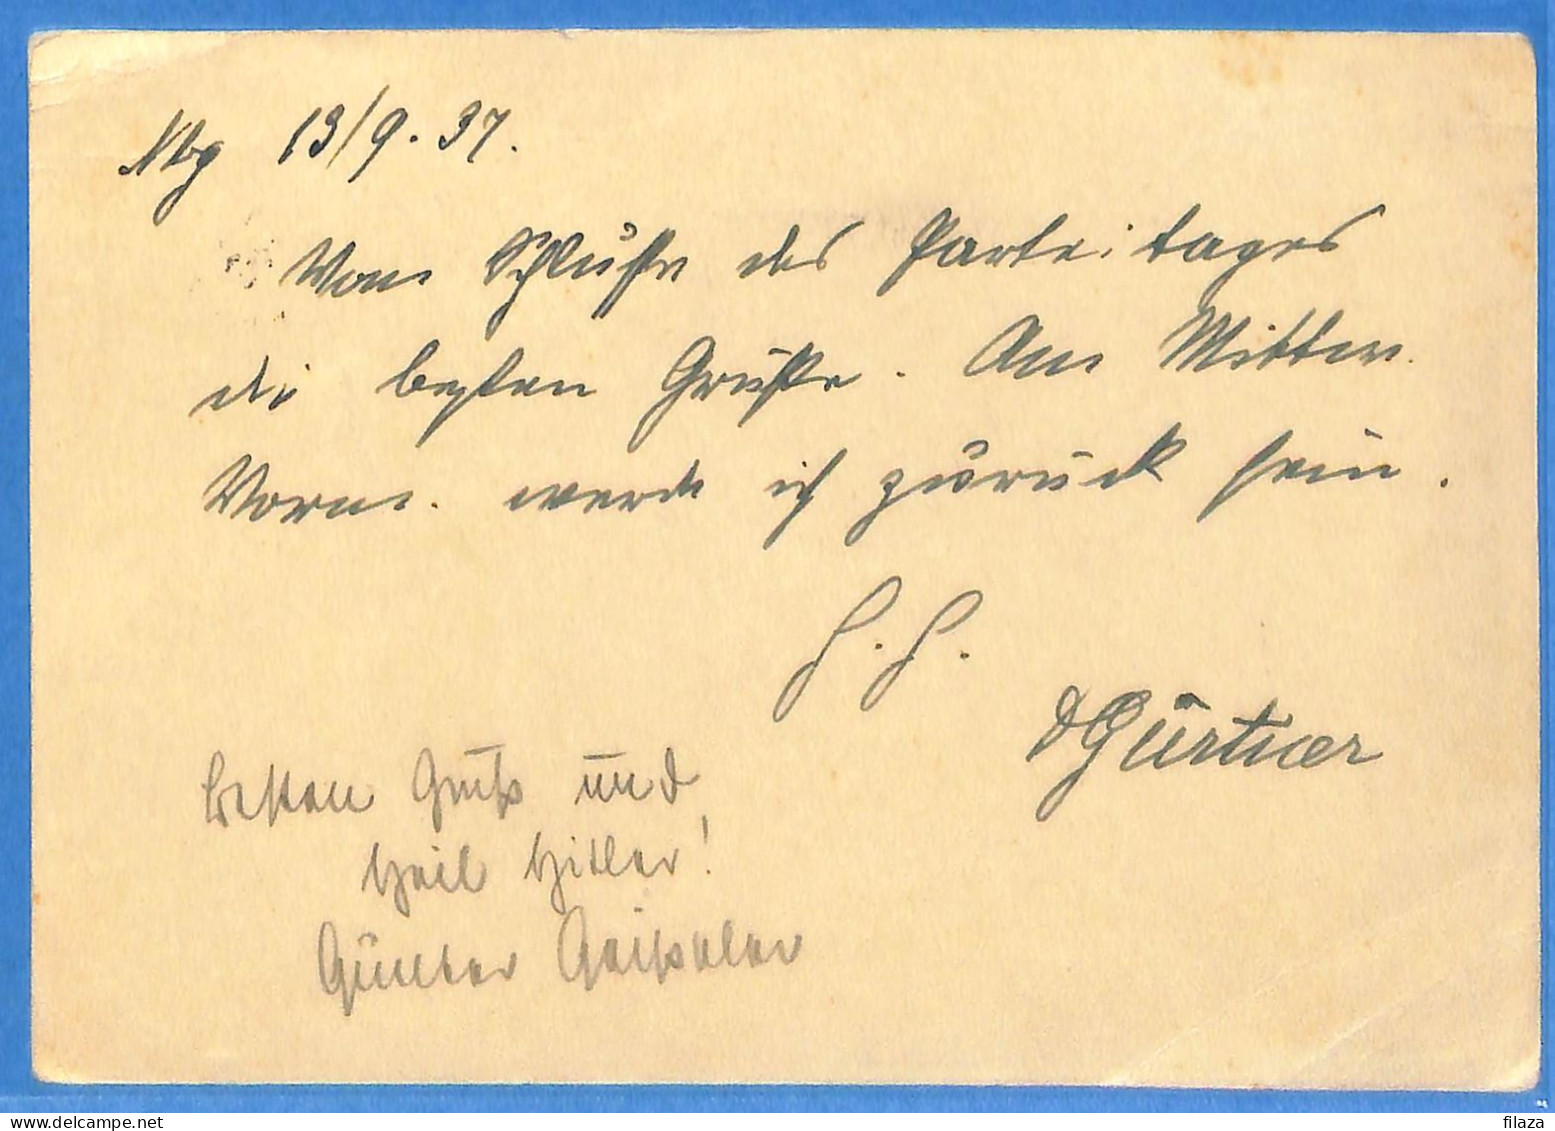 Nbg 13/9.37.
Vom Schluße des Parteitages
die besten Grüße. Am Mittw.
Vorm. werde ich zurück sein.
H. H.
Gürtner
Besten Gruß und
Heil Hitler!
Günter
filaza
delcampe.net